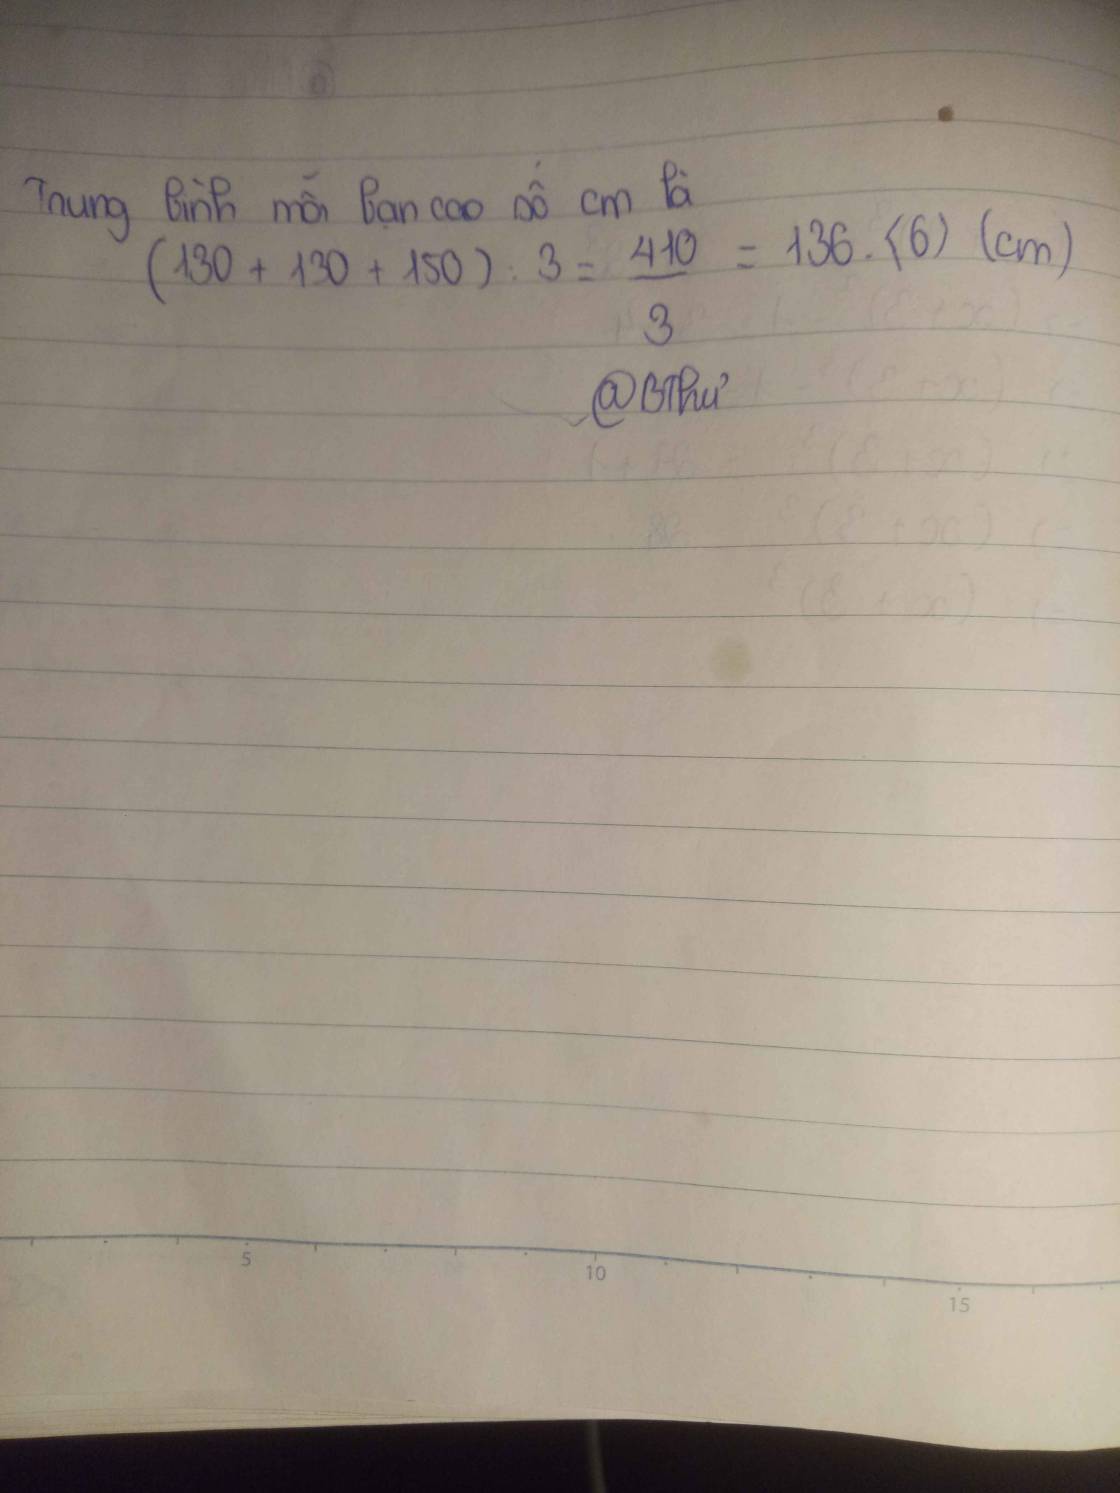 Trung bình mỗi bạn cao số cm là
(130 + 130 + 150) : 3 = 410/3 = 136.(6) (cm)
@BThư
5 10 15